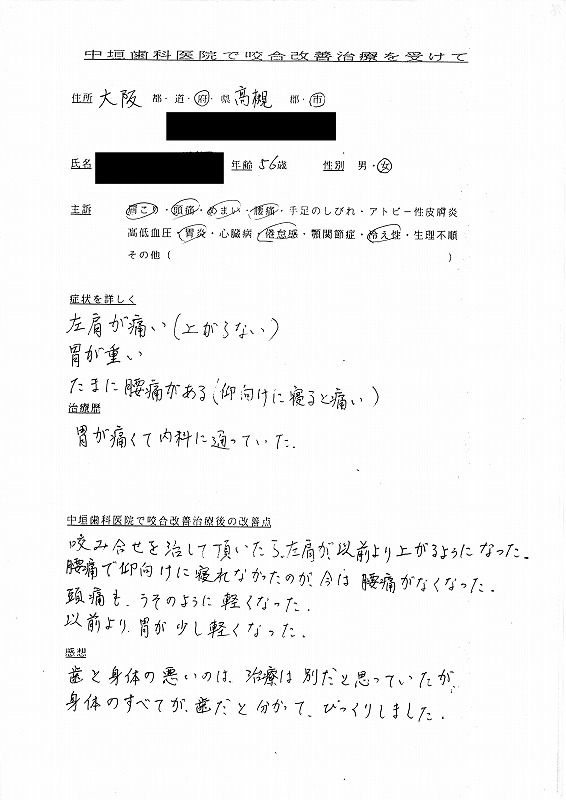 中垣歯科医院で咬合改善治療を受けて
住所 大阪 都・道・府・県 高槻 郡・市
氏名 年齢 56歳 性別 男・女
主訴 肩こり・頭痛・めまい・腰痛・手足のしびれ・アトピー性皮膚炎
高低血圧・胃炎・心臓病・倦怠感・顎関節症・冷え性・生理不順
その他（ ）
症状を詳しく
左肩が痛い（上がらない）
胃が重い
たまに腰痛がある（仰向けに寝ると痛い）
治療歴
胃が痛くて内科に通っていた．
中垣歯科医院で咬合改善治療後の改善点
咬み合せを治して頂いたら、左肩が以前より上がるようになった．
腰痛で仰向けに寝れなかったのが、今は腰痛がなくなった．
頭痛も、うそのように軽くなった．
以前より、胃が少し軽くなった．
感想
歯と身体の悪いのは、治療は別だと思っていたが、
身体のすべてが、歯だと分かって、びっくりしました．